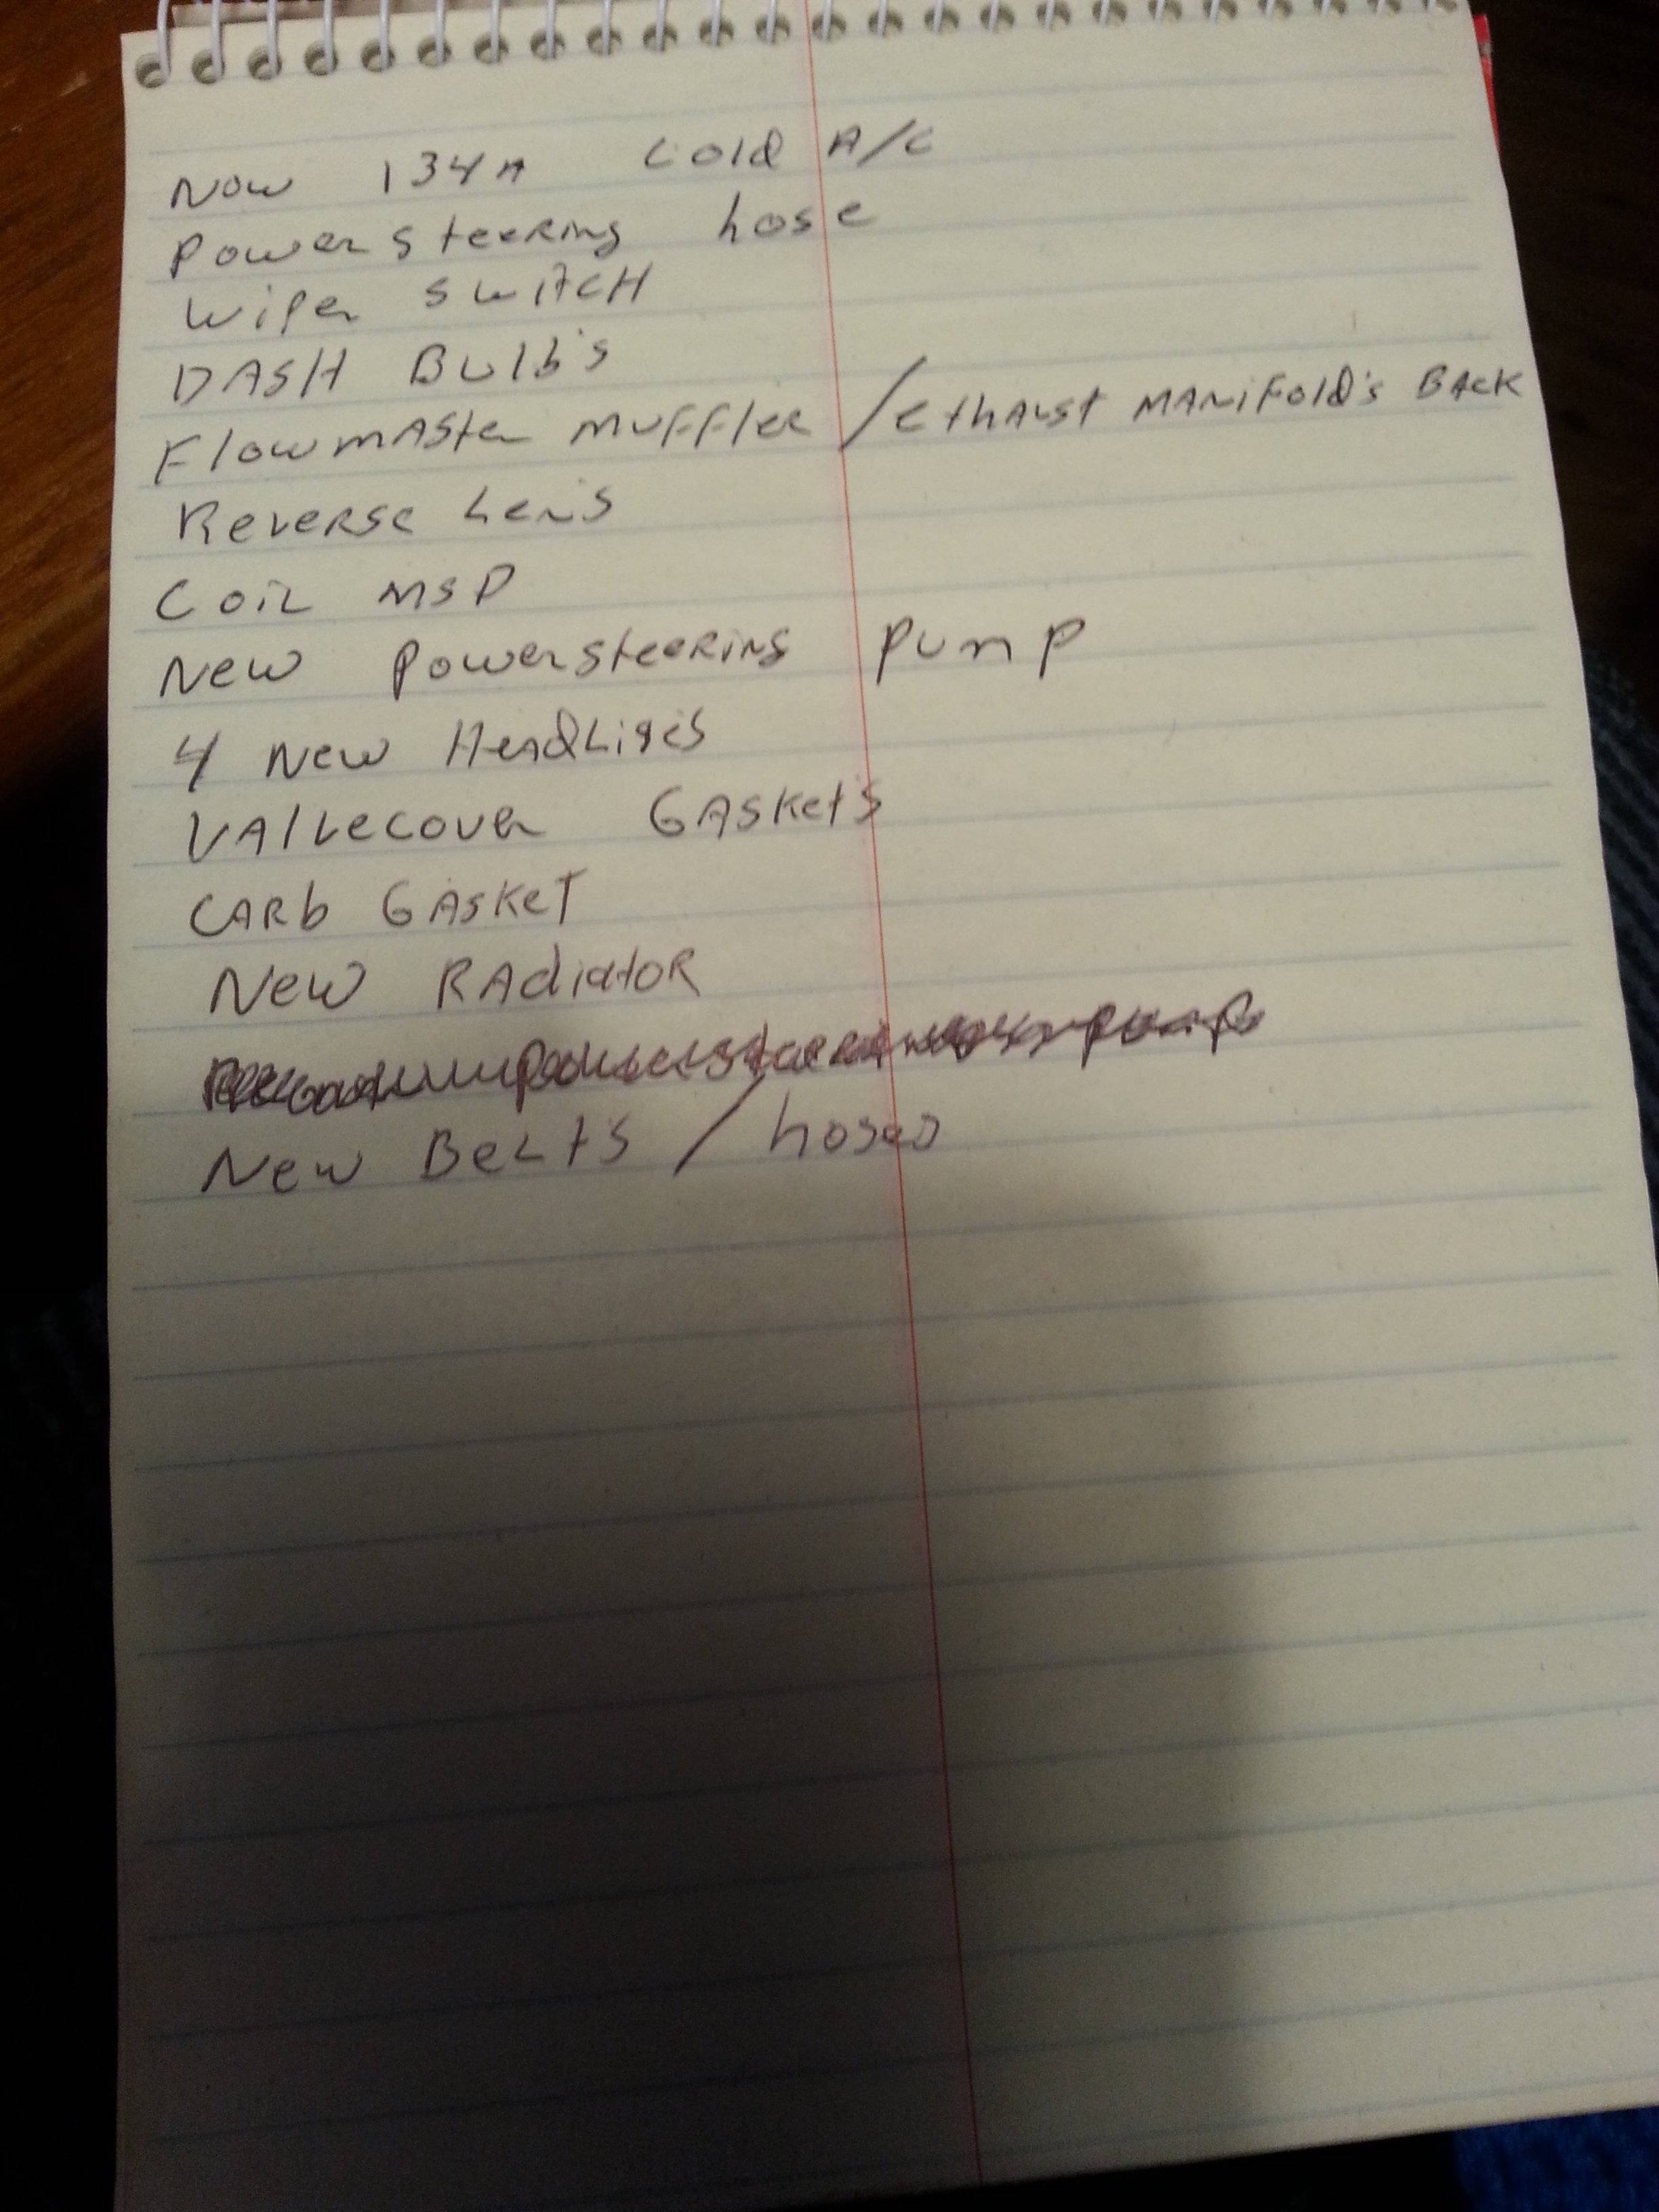 Now 134A Cold A/C
Power Steering hose
Wiper SWITCH
DASH Bulb's
Flowmaster muffler / exhaust MANiFold's BACK
Reverse Len's
Coil MSD
New Powersteering Pump
4 New
VALVecover GAsket's
CARb GAsKeT
New RAdiatoR
New BeLt's / hoses